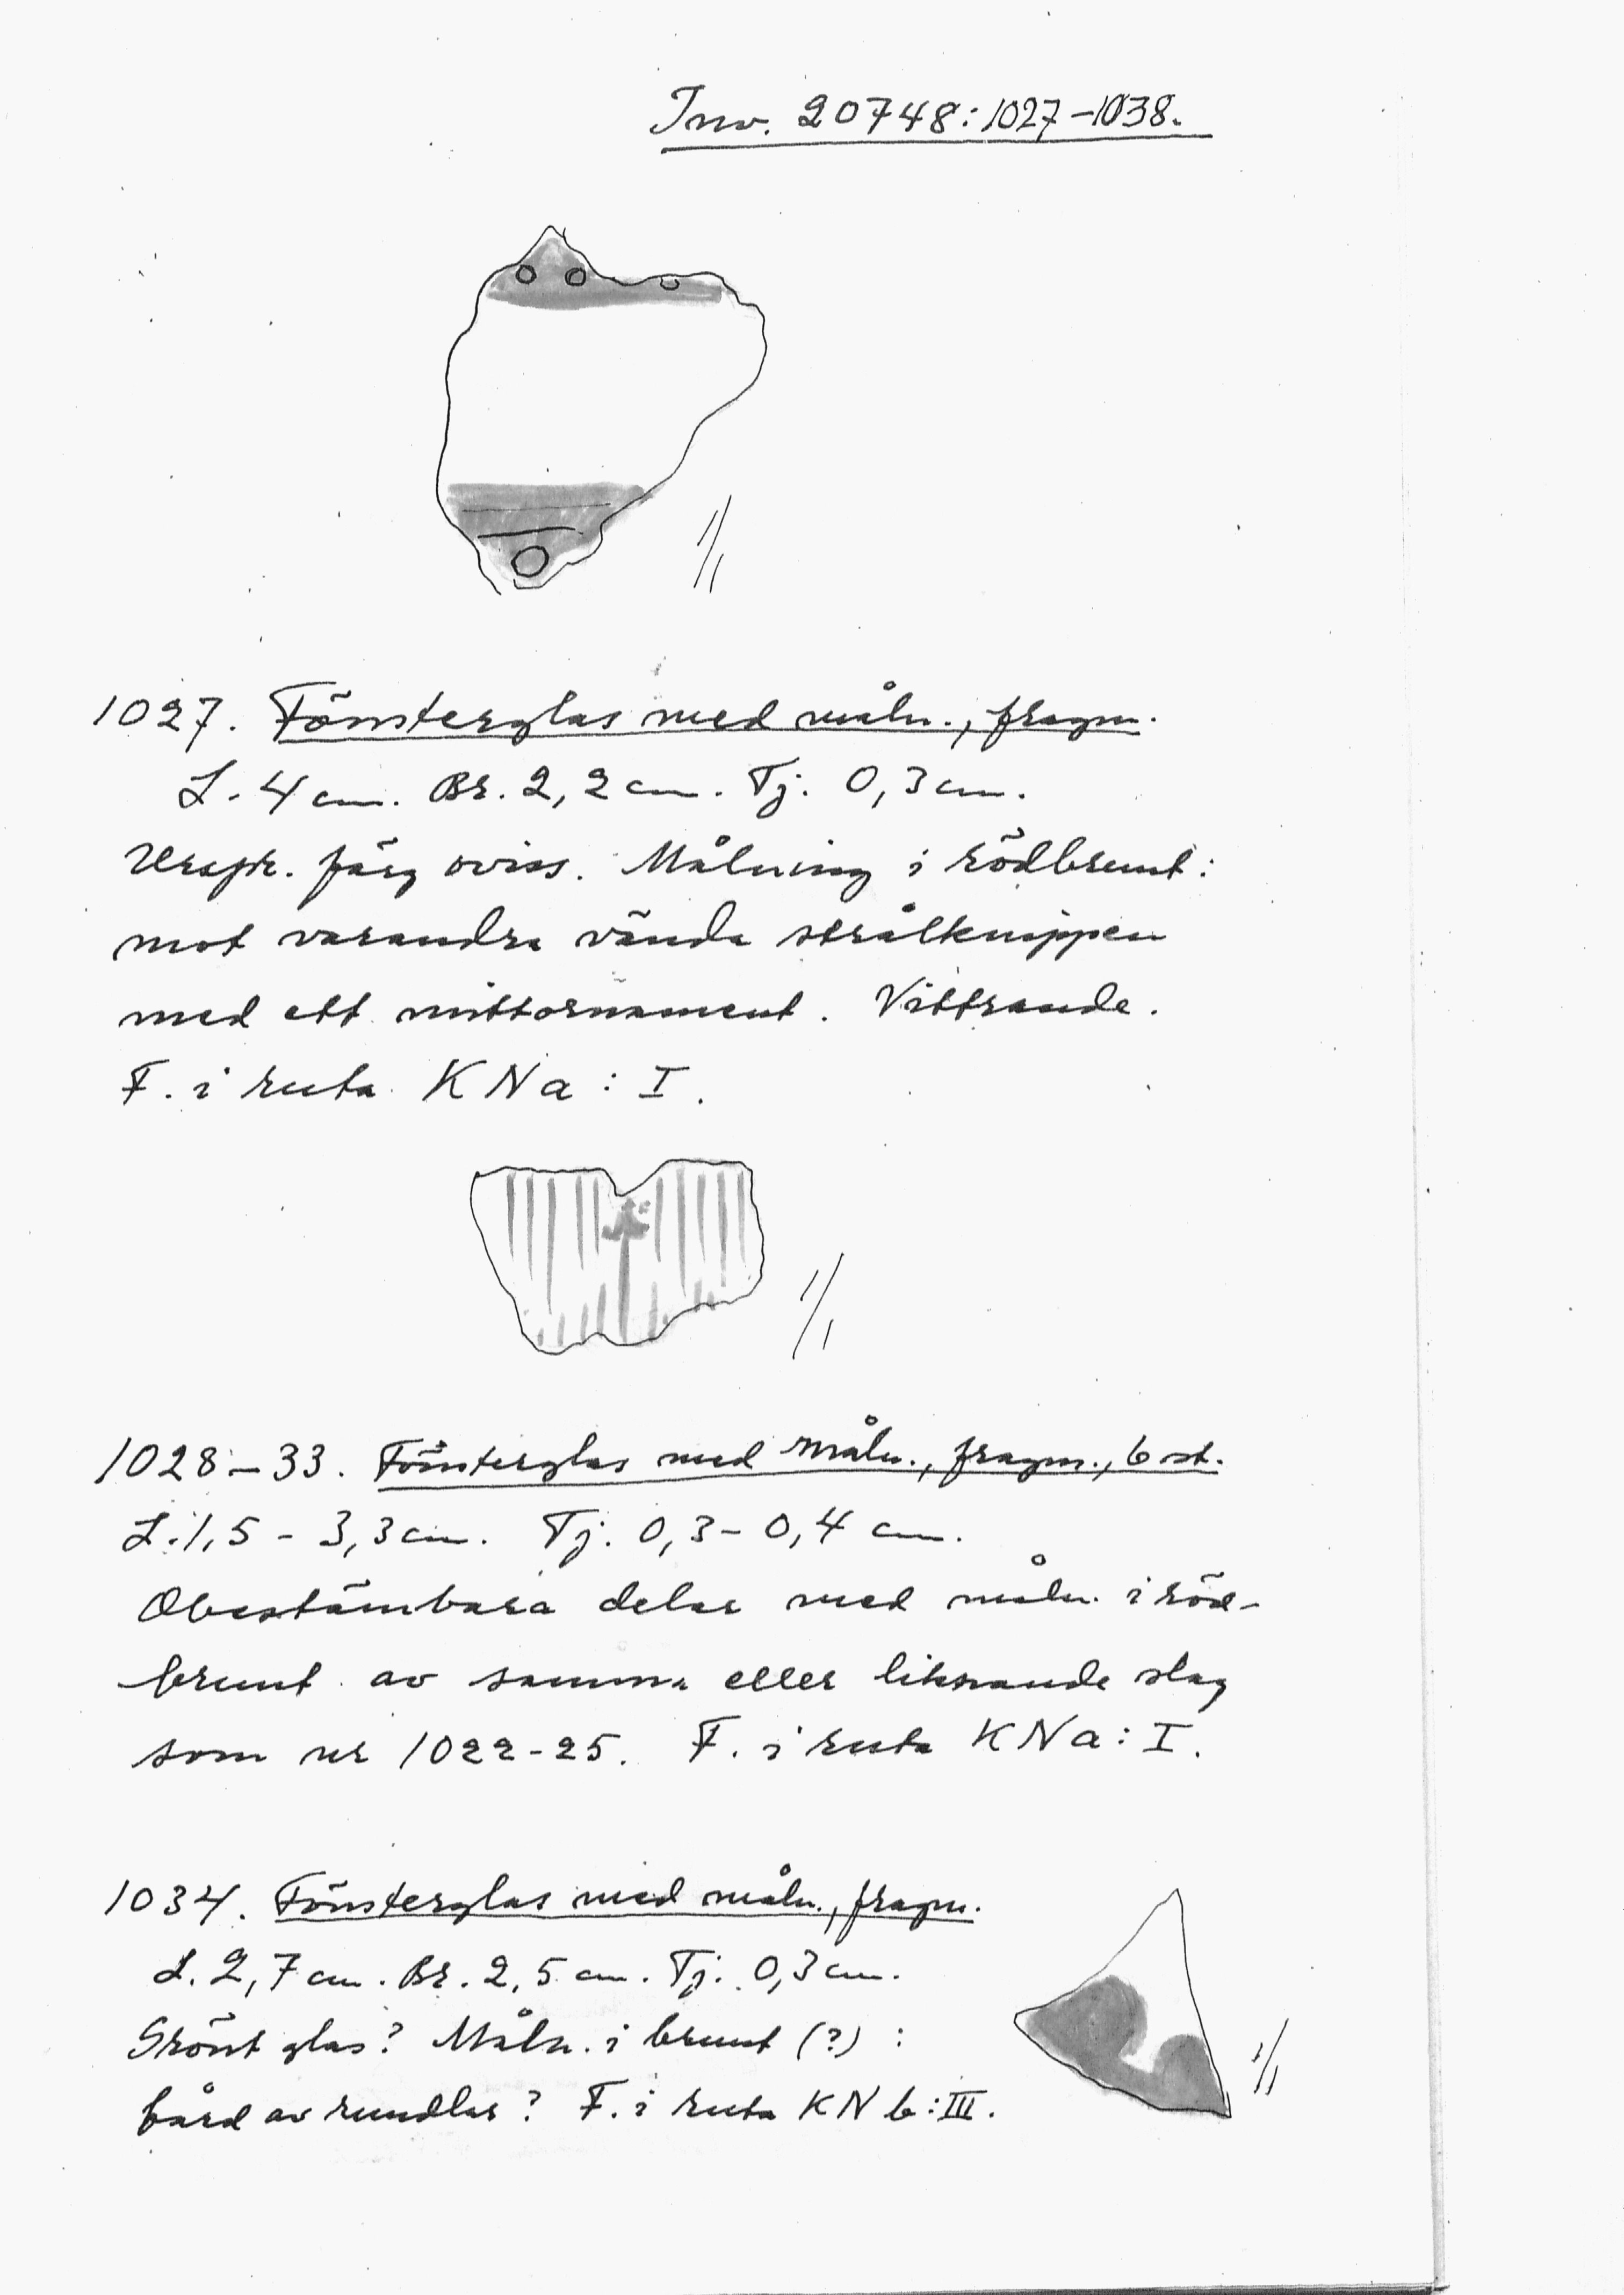 Inv. 20748:1027-1038.
1/1
1027. Fönsterglas med måln., fragm.
L. 4 cm. Br. 2,2 cm. Tj. 0,3 cm.
Urspr. färg oviss. Målning i rödbrunt:
mot varandra vända strålknippen
med ett mittornament. Vittrande.
F. i ruta KNa: I.
1/1
1028-33. Fönsterglas med måln., fragm., 6 st.
L. 1,5 - 3,3 cm. Tj. 0,3 - 0,4 cm.
Obestämbara delar med måln. i röd-
brunt av samma eller liknande slag
som nr 1022-25. F. i ruta KNa: I.
1034. Fönsterglas med måln., fragm.
L. 2,7 cm. Br. 2,5 cm. Tj. 0,3 cm.
Grönt glas? Måln. i brunt (?) :
bård av rundlar? F. i ruta KNb: III.
1/1